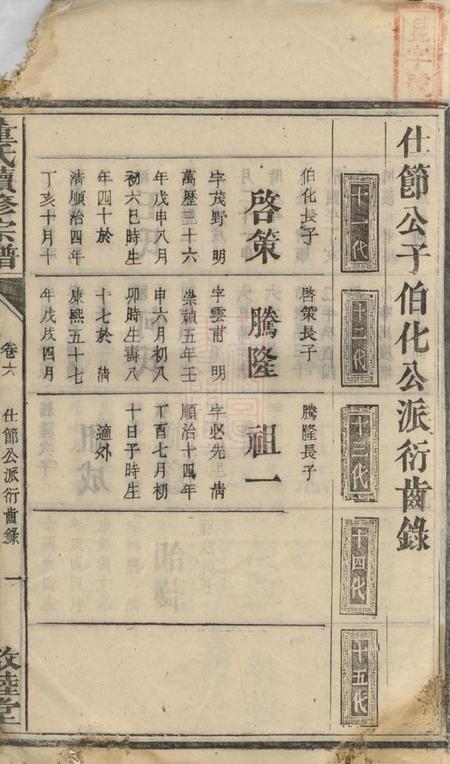 昆字號
仕節公子伯化公派衍齒錄
十一代
十二代
十三代
十四代
十五代
伯化長子
啓策
字茂野明
萬歷三十六
年戊申八月
初六巳時生
年四十於
清順治四年
丁亥十月十
啓策長子
騰隆
字雲甫明
崇禎五年壬
申六月初八
卯時生壽八
十七於清
康熙五十七
年戊戌四月
騰隆長子
祖一
字必先清
順治十四年
丁酉七月初
十日子時生
適外
氏續修宗譜
卷六
仕節公派衍齒錄
一
敦睦堂